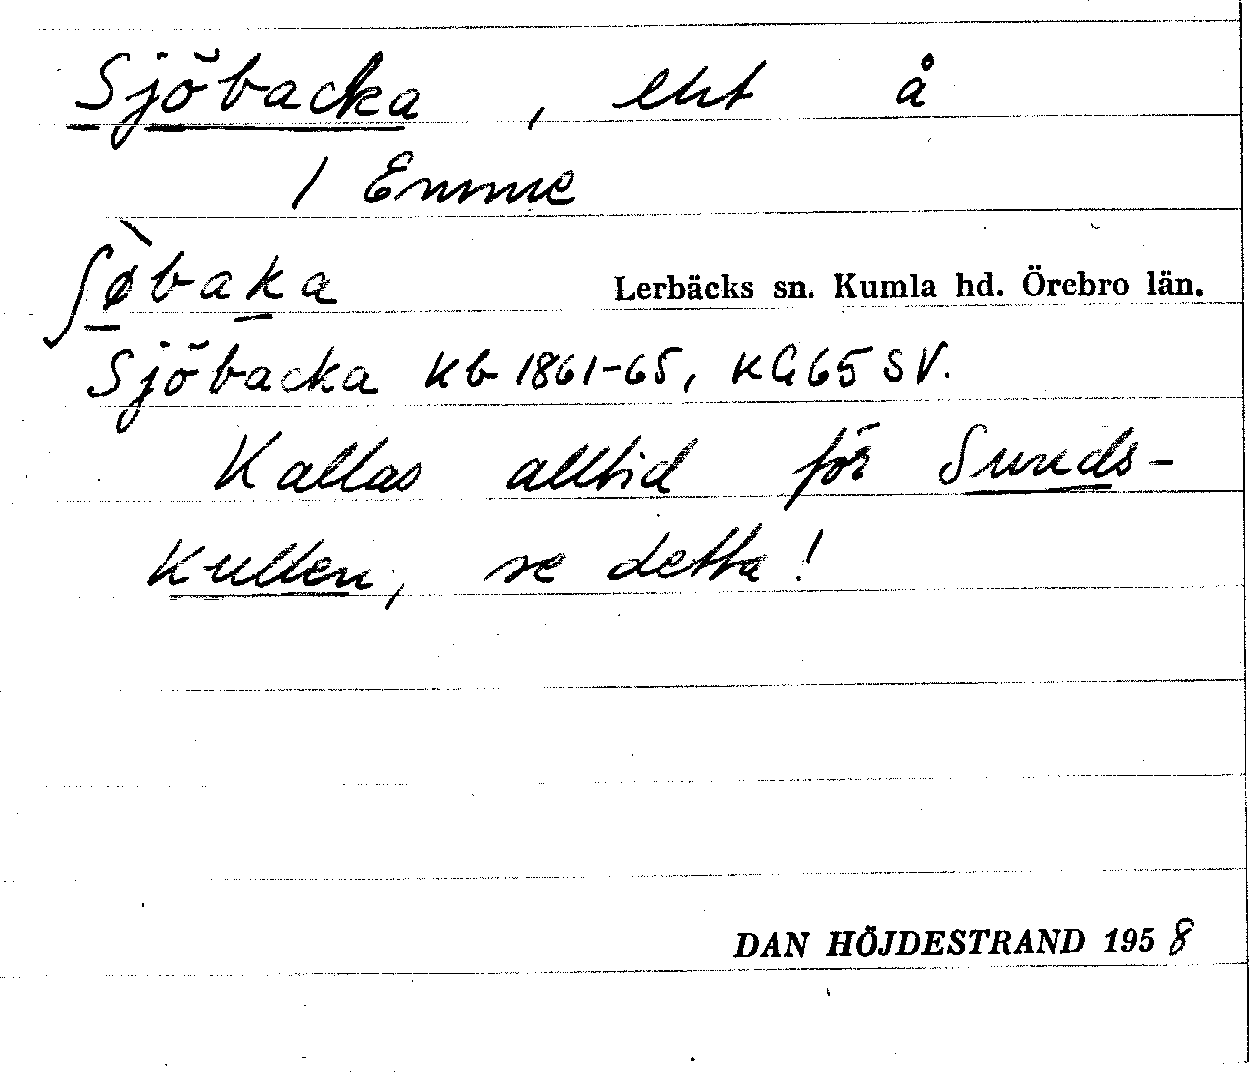 Sjöbacka, lht å
1 Emme
ʃø̀baka Lerbäcks sn. Kumla hd. Örebro län.
Sjöbacka Kb 1861-65, KG65SV.
Kallas alltid för Sunds-
kullen, se detta!
DAN HÖJDESTRAND 1958